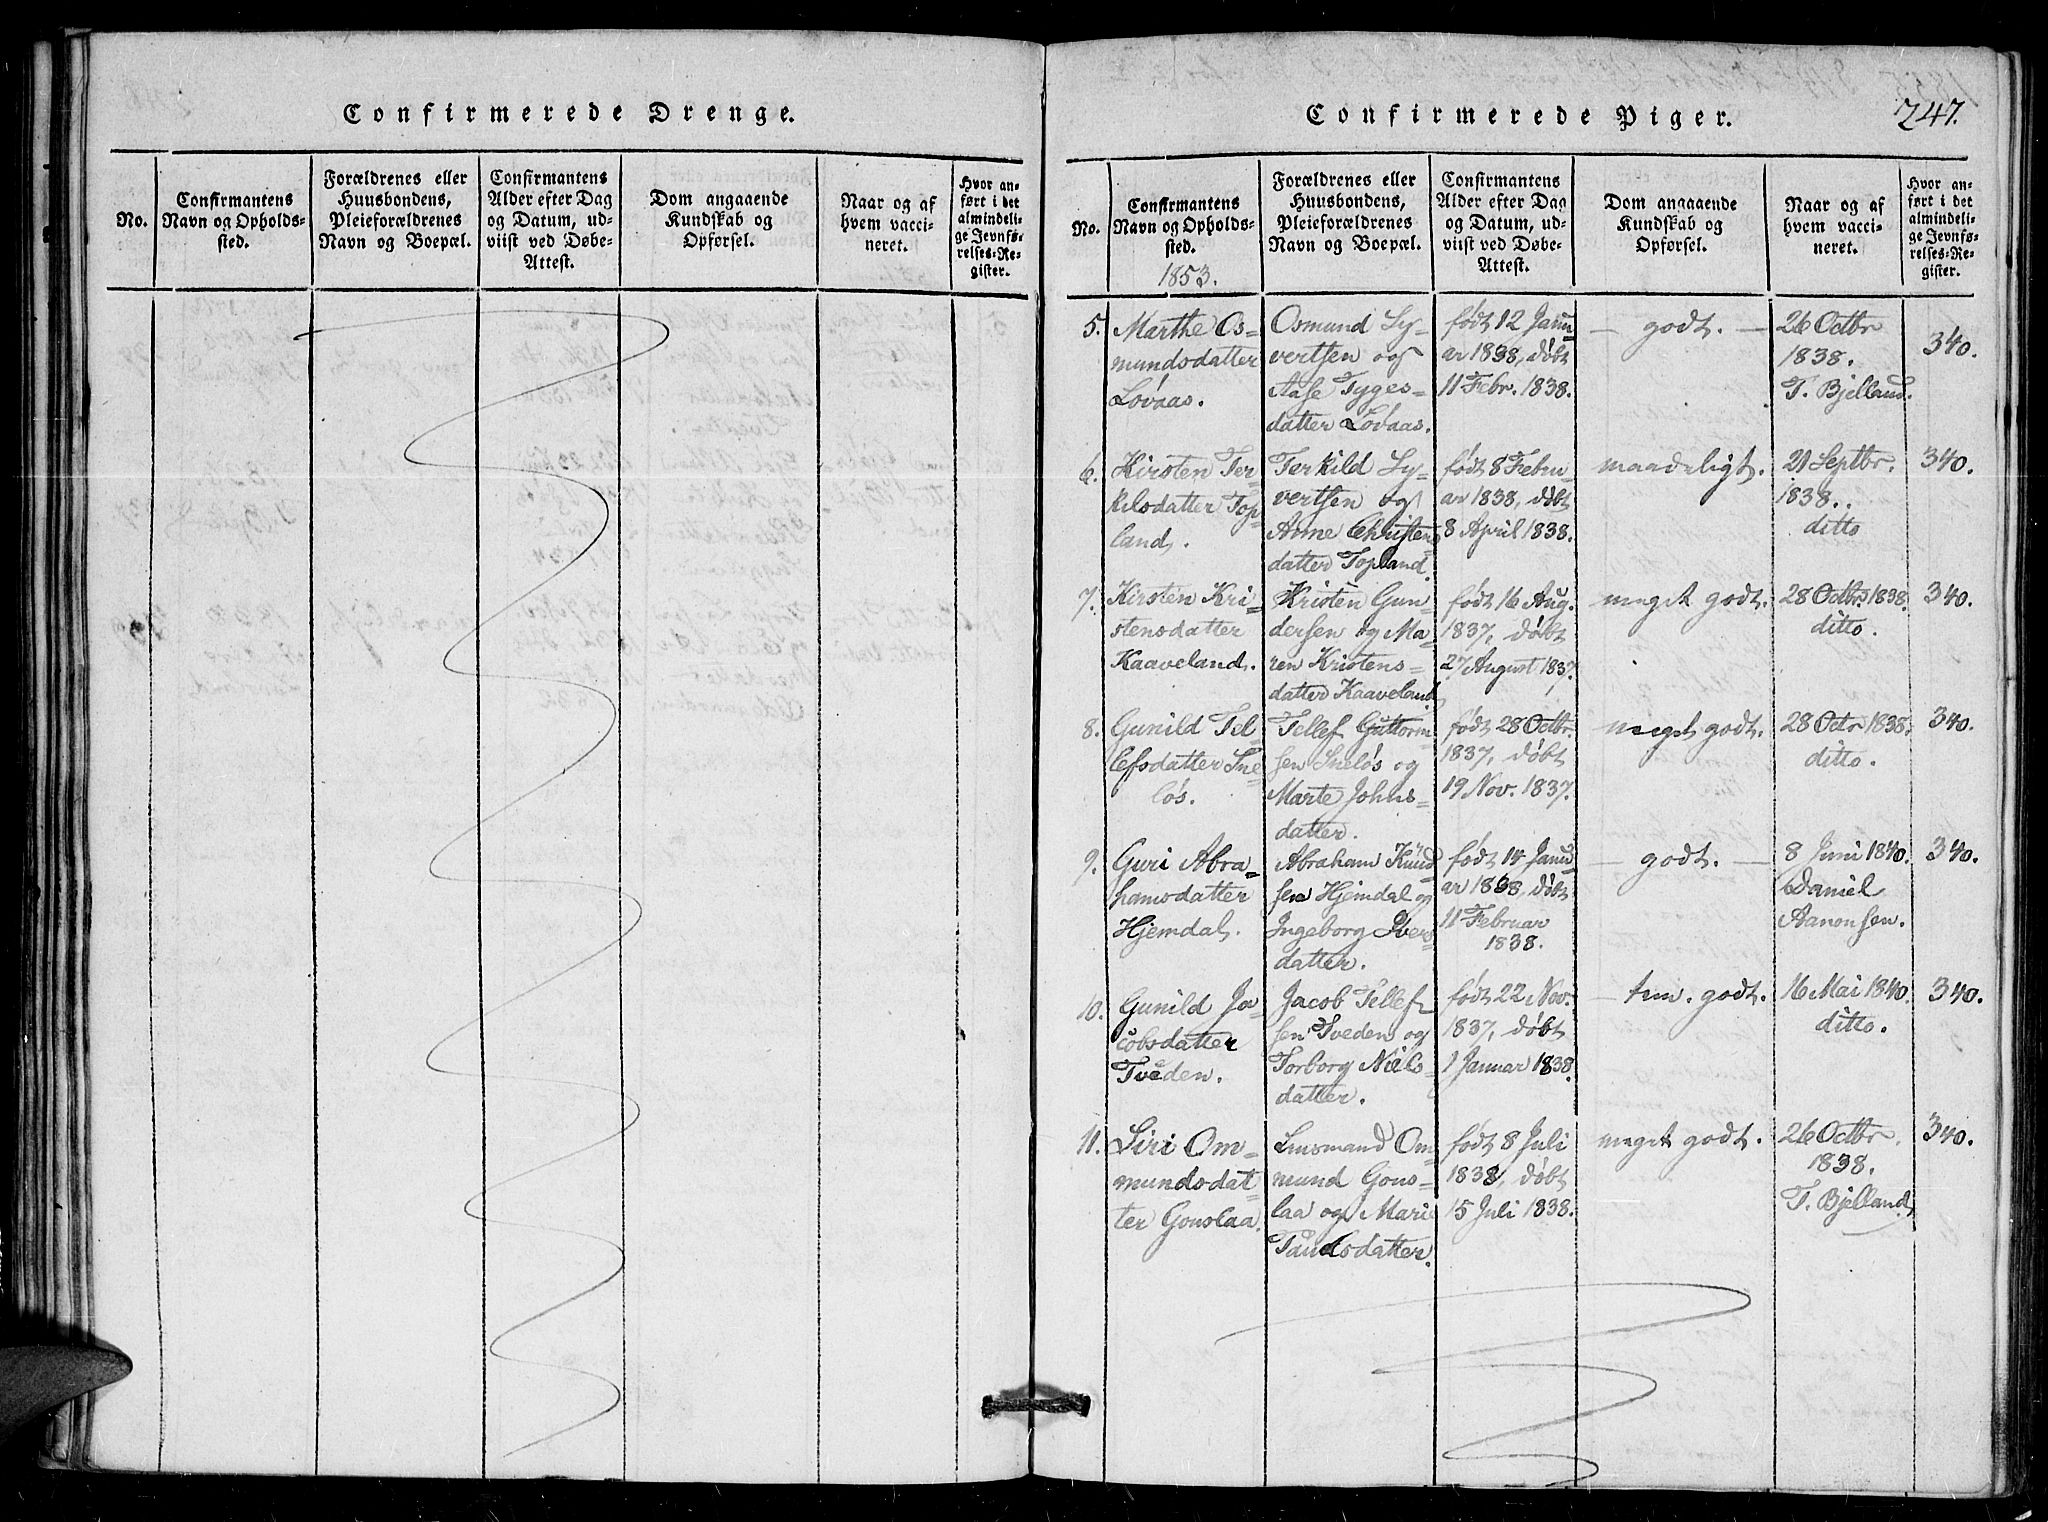 Confirmerede Drenge.
No.
Confirmantens
Navn og Opholds-
sted.
Forældrenes eller
Huusbondens,
Pleieforældrenes
Navn og Boepæl.
Confirmantens
Alder efter Dag
og Datum, ud-
viist ved Døbe-
Attest.
Dom angaaende
Kundskab og
Opførsel.
Naar og af
hvem vacci-
neret.
Hvor an-
ført i det
almindeli-
ge Jevnfø-
relses-Re-
gister.
Confirmerede Piger.
247.
No.
Confirmantens
Navn og Opholds-
sted.
1853.
Forældrenes eller
Huusbondens,
Pleieforældrenes
Navn og Boepæl.
Confirmantens
Alder efter Dag
og Datum, ud-
viist ved Døbe-
Attest.
Dom angaaende
Kundskab og
Opførsel.
Naar og af
hvem vacci-
neret.
Hvor an-
ført i det
almindeli-
ge Jevnfø-
relses-Re-
gister.
5.
Marthe Os=
mundsdatter
Løvaas.
Osmund Sy=
vertsen og
Aase Tyges=
datter Løvaas.
født 12 Janu
ar 1838, døbt
11 Febr. 1838.
— godt. —
26 Octbr
1838.
T. Bjelland.
340.
6.
Kirsten Ter=
kilsdatter Top=
land.
Terkild Sy=
vertsen og
Anne Christens
datter Topland.
født 8 Febru=
ar 1838, døbt
8 April 1838.
maadeligt.
21 Septbr.
1838.
ditto
340.
7.
Kirsten Kri=
stensdatter
Kaaveland.
Kristen Gun=
dersen og Ma=
ren Kristens=
datter Kaaveland.
født 16 Aug.
1837, døbt
27 August 1837.
meget godt.
28 Octbr. 1838.
ditto.
340.
8.
Gunild Tel=
lefsdatter Sne=
løs.
Tellef Guttorm
sen Sneløs og
Marte Johns=
datter.
født 28 Octbr.
1837, døbt
19 Nov. 1837.
meget godt.
28 Octr 1838.
ditto.
340.
9.
Guri Abra=
hamsdatter
Hjemdal.
Abraham Knud
sen Hjemdal og
Ingeborg Ivers
datter.
født 14 Janu
ar 1838, døbt
11 Februar
1838.
— godt. —
8 Juni 1840.
Daniel
Aanonsen.
340.
10.
Gunild Ja=
cobsdatter
Tveden.
Jacob Tellef
sen Tveden og
Torborg Niels=
datter.
født 22 Nov.
1837, døbt
1 Januar 1838.
— tem. godt.
16 Mai 1840.
ditto.
340.
11.
Siri Om=
mundsdat=
ter Gonslaa.
Lensmand Om
mund Gons=
laa og Mari
datter.
født 8 Juli
1838, døbt
15 Juli 1838.
meget godt.
26 Octbr.
1838.
T. Bjelland.
340.